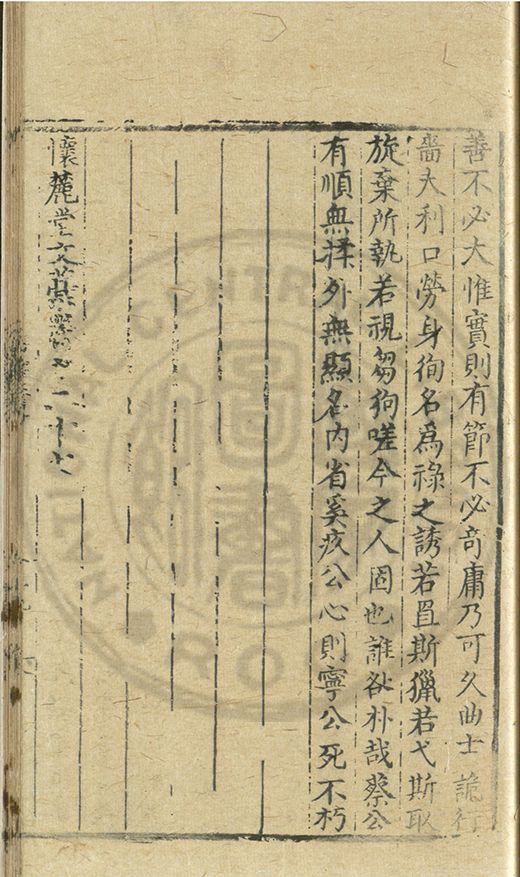 善不必大惟實則有節不必奇庸乃可久曲士詭行
嗇夫利口勞身徇名爲祿之誘若罝斯獵若弋斯取
旋棄所執若視芻狗嗟今之人固也誰欲朴哉蔡公
有順無揉外無顯名内省奚疚公心則寧公死不朽
懷麓堂文藁卷之二十